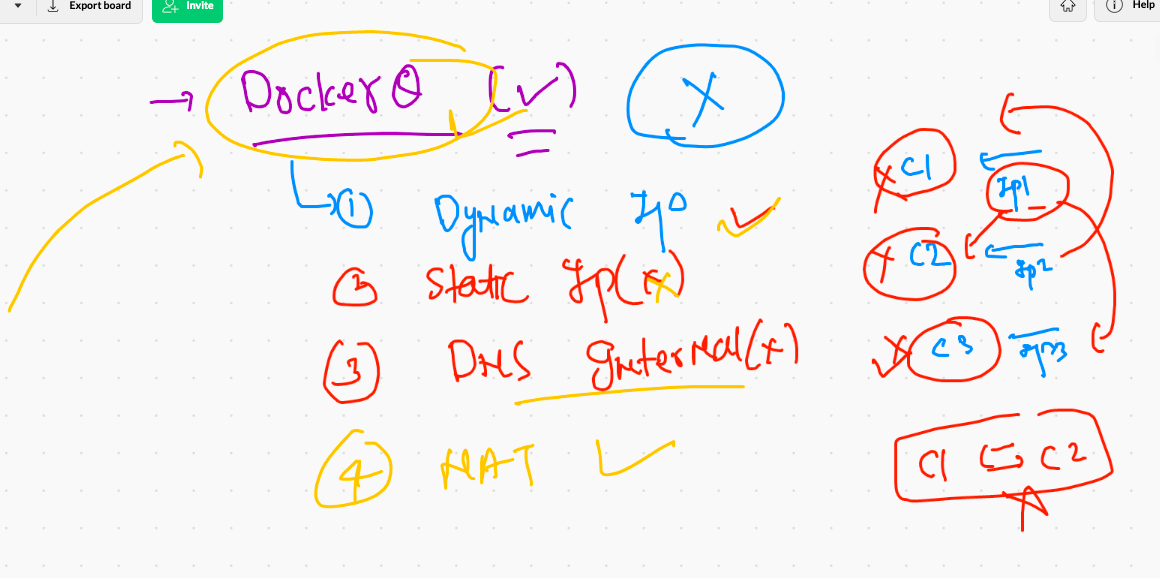 Export board
Invite
Help
→ Docker0 (✓) X
(1) Dynamic Ip ✓
(2) Static Ip(x)
(3) DNS Internal(x)
(4) NAT ✓
x C1 Ip1
x C2 Ip2
x C3 Ip3
C1 ⇆ C2